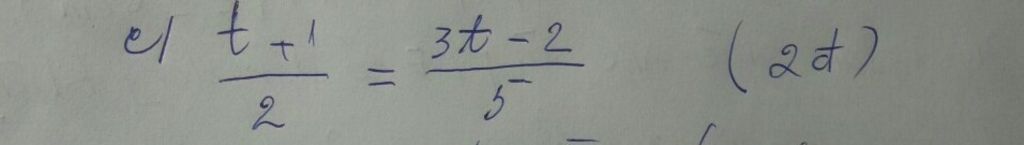 e) t + 1 / 2 = 3t - 2 / 5 (2đ)